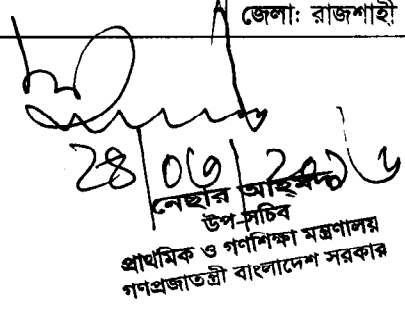 জেলা: রাজশাহী
নেছার আহম্মদ
উপ-সচিব
প্রাথমিক ও গণশিক্ষা মন্ত্রণালয়
গণপ্রজাতন্ত্রী বাংলাদেশ সরকার